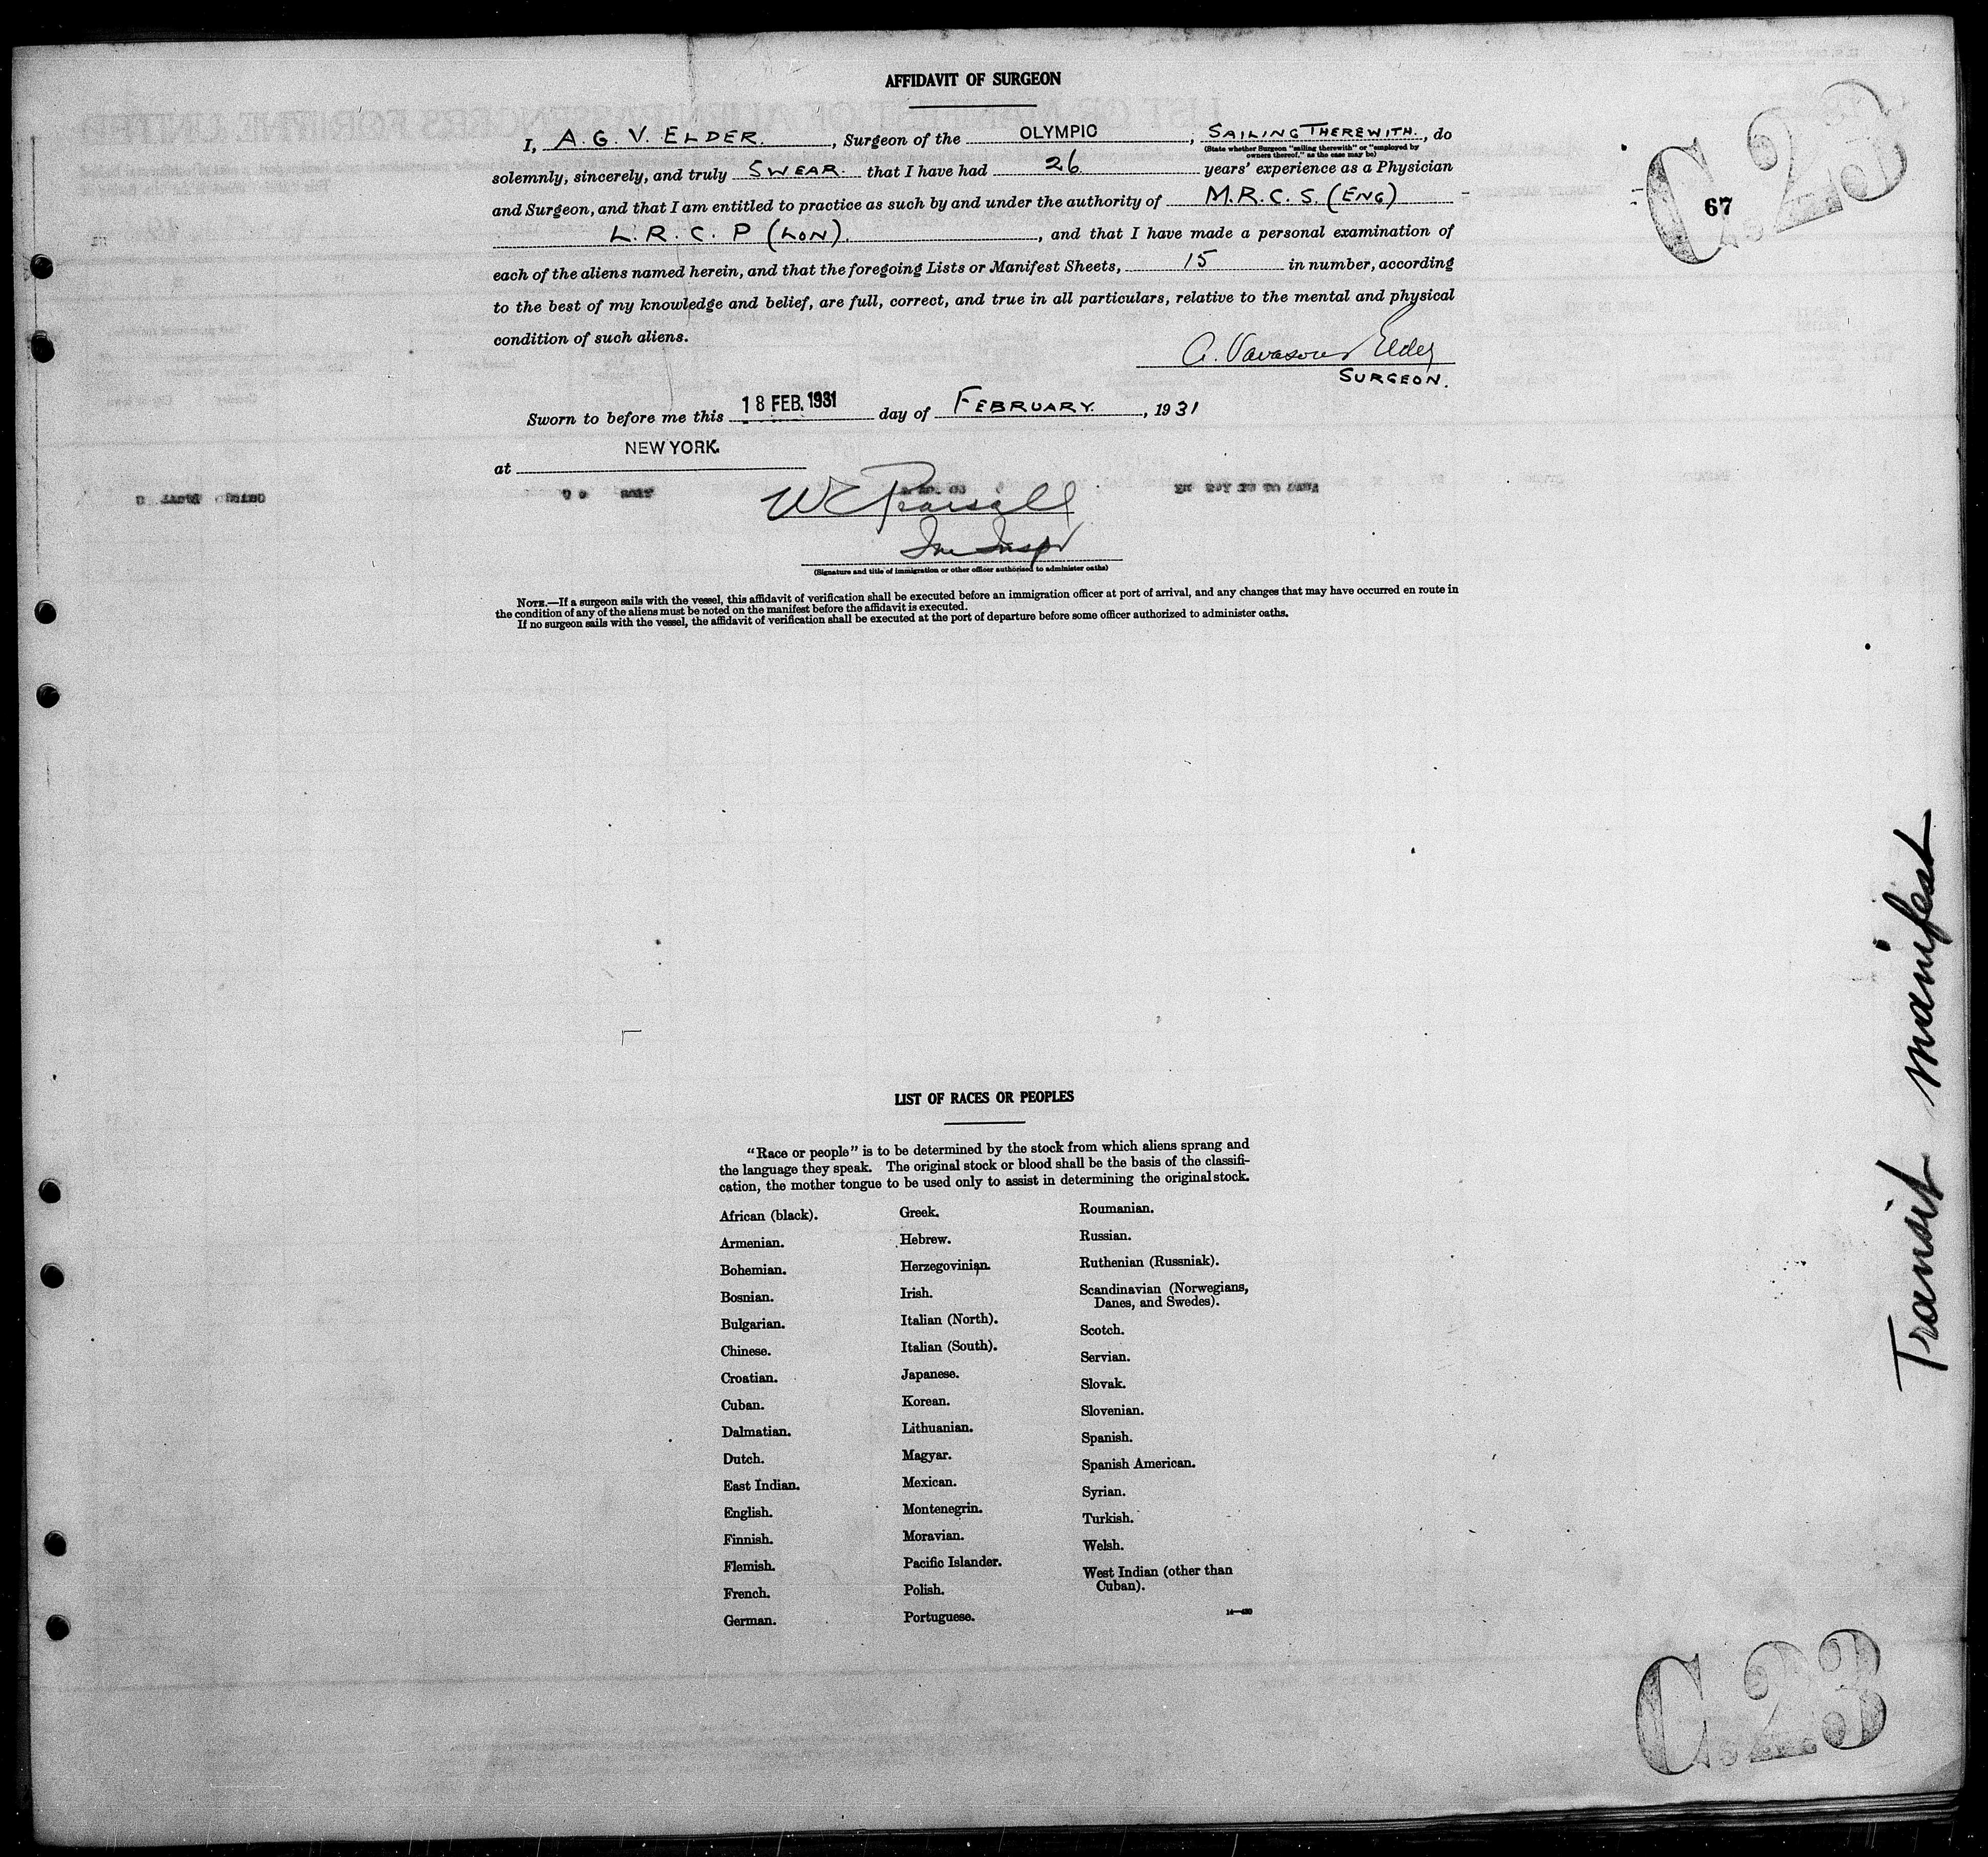 AFFIDAVIT OF SURGEON
I, A. G. V. ELDER., Surgeon of the OLYMPIC, SAILING THEREWITH., do
(State whether Surgeon "sailing therewith" or "employed by
owners thereof," as the case may be)
solemnly, sincerely, and truly SWEAR. that I have had 26 years' experience as a Physician
and Surgeon, and that I am entitled to practice as such by and under the authority of M.R.C.S. (ENG)
L.R.C.P (LON)., and that I have made a personal examination of
each of the aliens named herein, and that the foregoing Lists or Manifest Sheets, 15 in number, according
to the best of my knowledge and belief, are full, correct, and true in all particulars, relative to the mental and physical
condition of such aliens.
A. Vavasour Elder
SURGEON.
Sworn to before me this 18 FEB. 1931 day of FEBRUARY., 1931
at NEW YORK.
W C Pearsall
Im Inspr
(Signature and title of immigration or other officer authorized to administer oaths)
NOTE.—If a surgeon sails with the vessel, this affidavit of verification shall be executed before an immigration officer at port of arrival, and any changes that may have occurred en route in
the condition of any of the aliens must be noted on the manifest before the affidavit is executed.
If no surgeon sails with the vessel, the affidavit of verification shall be executed at the port of departure before some officer authorized to administer oaths.
C 23
67
Transit manifest
LIST OF RACES OR PEOPLES
"Race or people" is to be determined by the stock from which aliens sprang and
the language they speak. The original stock or blood shall be the basis of the classifi-
cation, the mother tongue to be used only to assist in determining the original stock.
African (black).
Armenian.
Bohemian.
Bosnian.
Bulgarian.
Chinese.
Croatian.
Cuban.
Dalmatian.
Dutch.
East Indian.
English.
Finnish.
Flemish.
French.
German.
Greek.
Hebrew.
Herzegovinian.
Irish.
Italian (North).
Italian (South).
Japanese.
Korean.
Lithuanian.
Magyar.
Mexican.
Montenegrin.
Moravian.
Pacific Islander.
Polish.
Portuguese.
Roumanian.
Russian.
Ruthenian (Russniak).
Scandinavian (Norwegians,
Danes, and Swedes).
Scotch.
Servian.
Slovak.
Slovenian.
Spanish.
Spanish American.
Syrian.
Turkish.
Welsh.
West Indian (other than
Cuban).
C 23